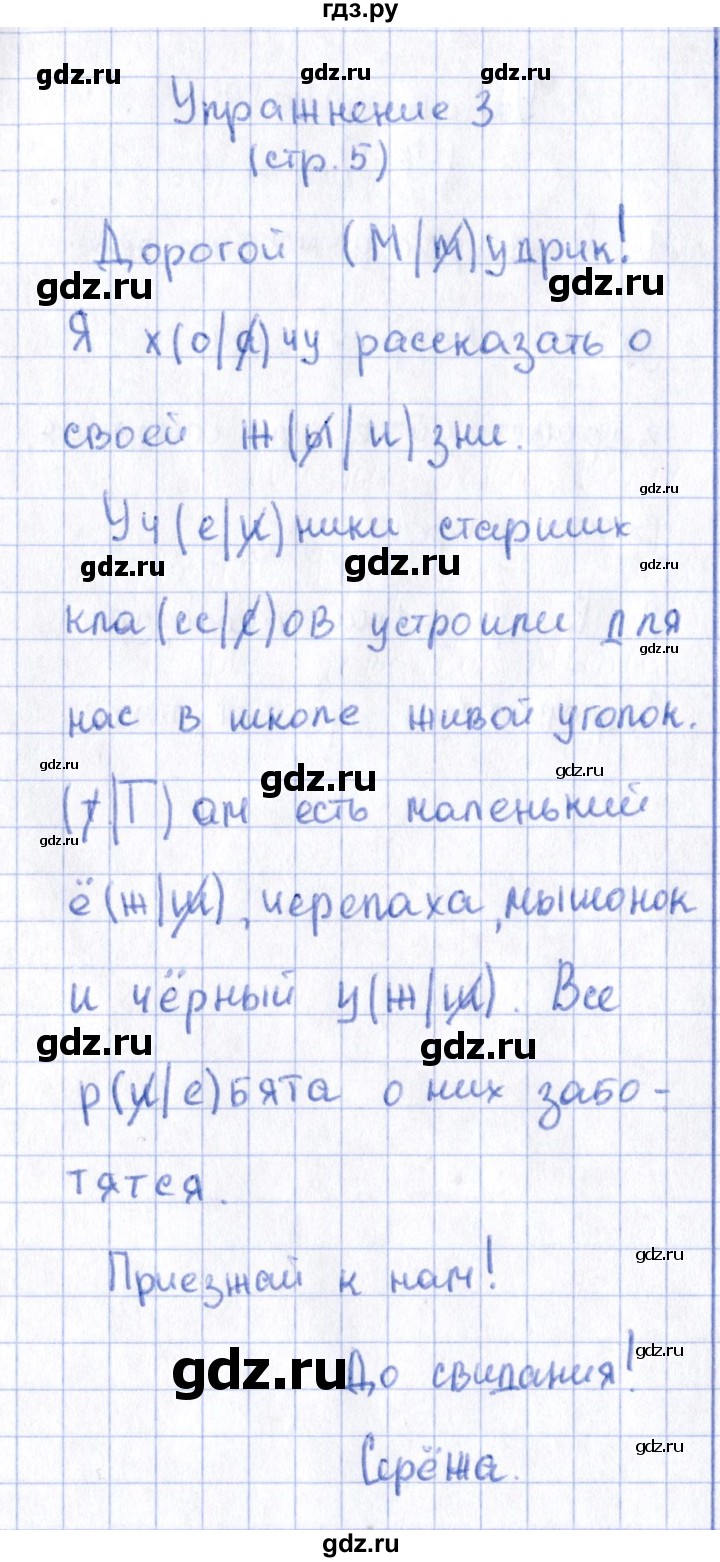 гдз.ру
gdz.ru gdz.ru gdz.ru
Упражнение 3
(стр. 5)
Дорогой (М/м)удрик!
gdz.ru gdz.ru
Я х(о/а)чу рассказать о
своей ж(ы/и)зни.
gdz.ru
Уч(е/и)ники старших
gdz.ru gdz.ru gdz.ru
кла(сс/с)ов устроили для
gdz.ru
нас в школе живой уголок.
gdz.ru gdz.ru gdz.ru
(т/Т)ам есть маленький
gdz.ru
ё(ж/ш), черепаха, мышонок
и чёрный у(ж/ш). Все
gdz.ru gdz.ru
р(и/е)бята о них забо-
тятся.
gdz.ru
Приезжай к нам!
gdz.ru gdz.ru
До свидания!
gdz.ru
Серёжа.
gdz.ru